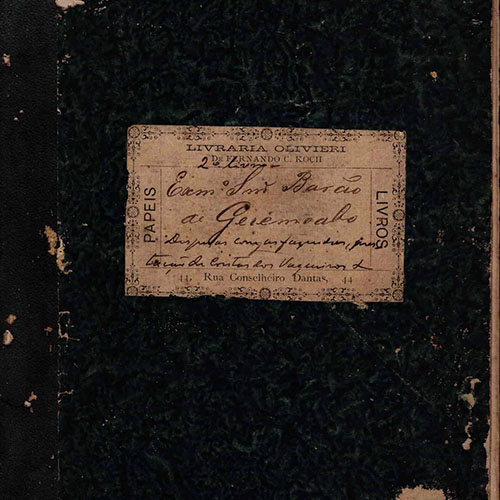 LIVRARIA OLIVIERI
DE FERNANDO C. KOCH
2º Livro
PAPEIS
LIVROS
Exmº Snr Barão
de Geremoabo
Despesas com as fazendas, pres
tacão de Contas dos Vaqueiros &
44, Rua Conselheiro Dantas, 44